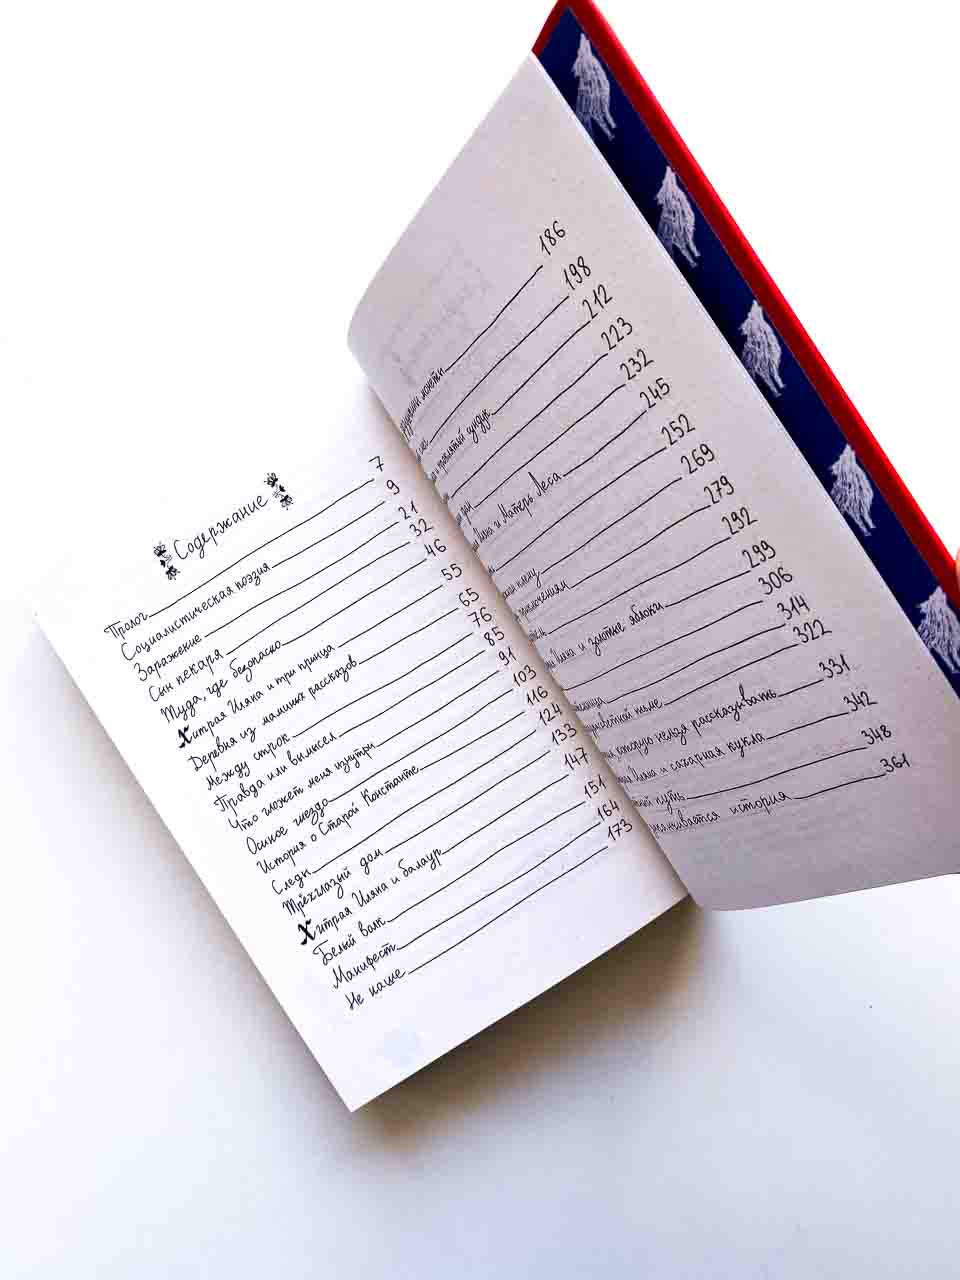 Содержание
Пролог 7
Социалистическая поэзия 9
Заражение 21
Сын пекаря 32
Туда, где безопасно 46
Хитрая Иляна и три принца 55
Деревня из маминых рассказов 65
Между строк 76
Правда или вымысел 85
Что гложет меня изнутри 91
Осиное гнездо 103
История о Старой Константе 116
Следы 124
Трёхглазый дом 133
Хитрая Иляна и балаур 147
Белый волк 151
Манифест 164
Не наше 173
монеты 186
198
и проклятый сундук 212
223
232
Иляна и Матерь Леса 245
252
книгу 269
приключениям 279
292
Иляна и золотые яблоки 299
306
314
322
которую нельзя рассказывать 331
Иляна и сахарная кукла 342
путь 348
история 361